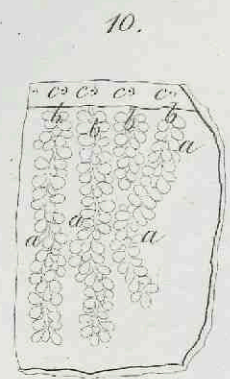 10.
c c c c
b b b b
a
a a a